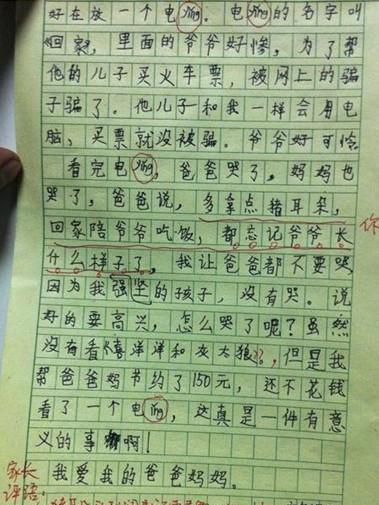 好在放一个电ying。电ying的名字叫
《回家》，里面的爷爷好惨，为了帮
他的儿子买火车票，被网上的骗
子骗了。他儿子和我一样会用电
脑，买票就没被骗。爷爷好可怜
看完电ying，爸爸哭了，妈妈也
哭了，爸爸说，多拿点猪耳朵，
回家陪爷爷吃饭，都忘记爷爷长
什么样子了，我让爸爸都不要哭，
因为我强坚的孩子，没有哭。说
好的要高兴，怎么哭了呢？虽然
没有看《喜洋洋和灰太狼》，但是我
帮爸爸妈节约了150元，还不花钱
看了一个电ying，这真是一件有意
义的事啊！
我爱我的爸爸妈妈。
家长
评语：